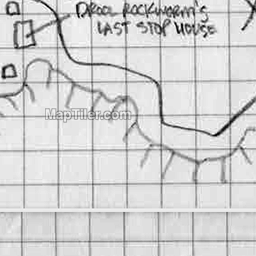 DROOL ROCKWORM'S
LAST STOP HOUSE
MapTiler.com